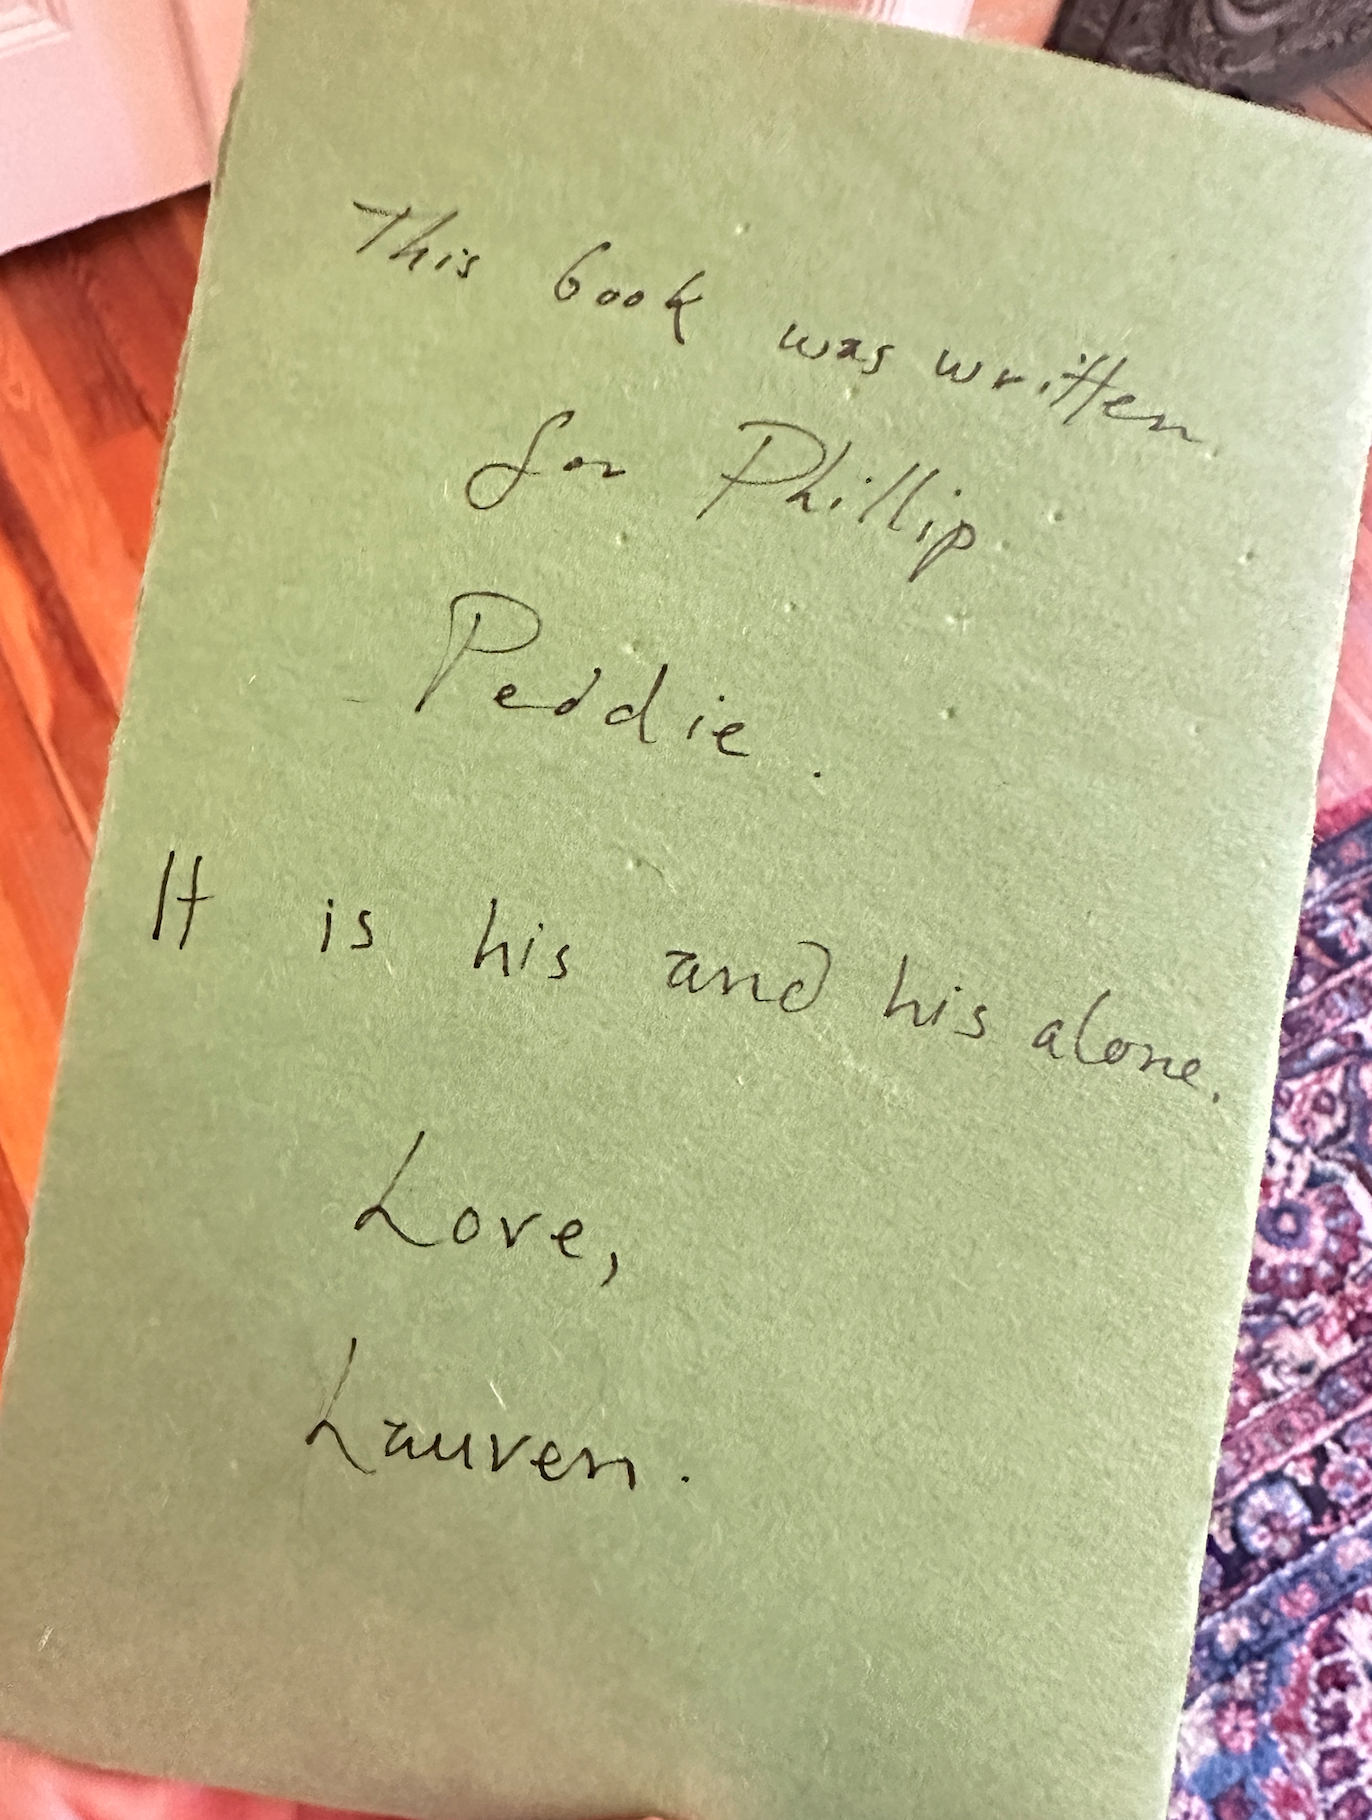 This book was written
for Phillip
Peddie.
It is his and his alone.
Love,
Lauren.